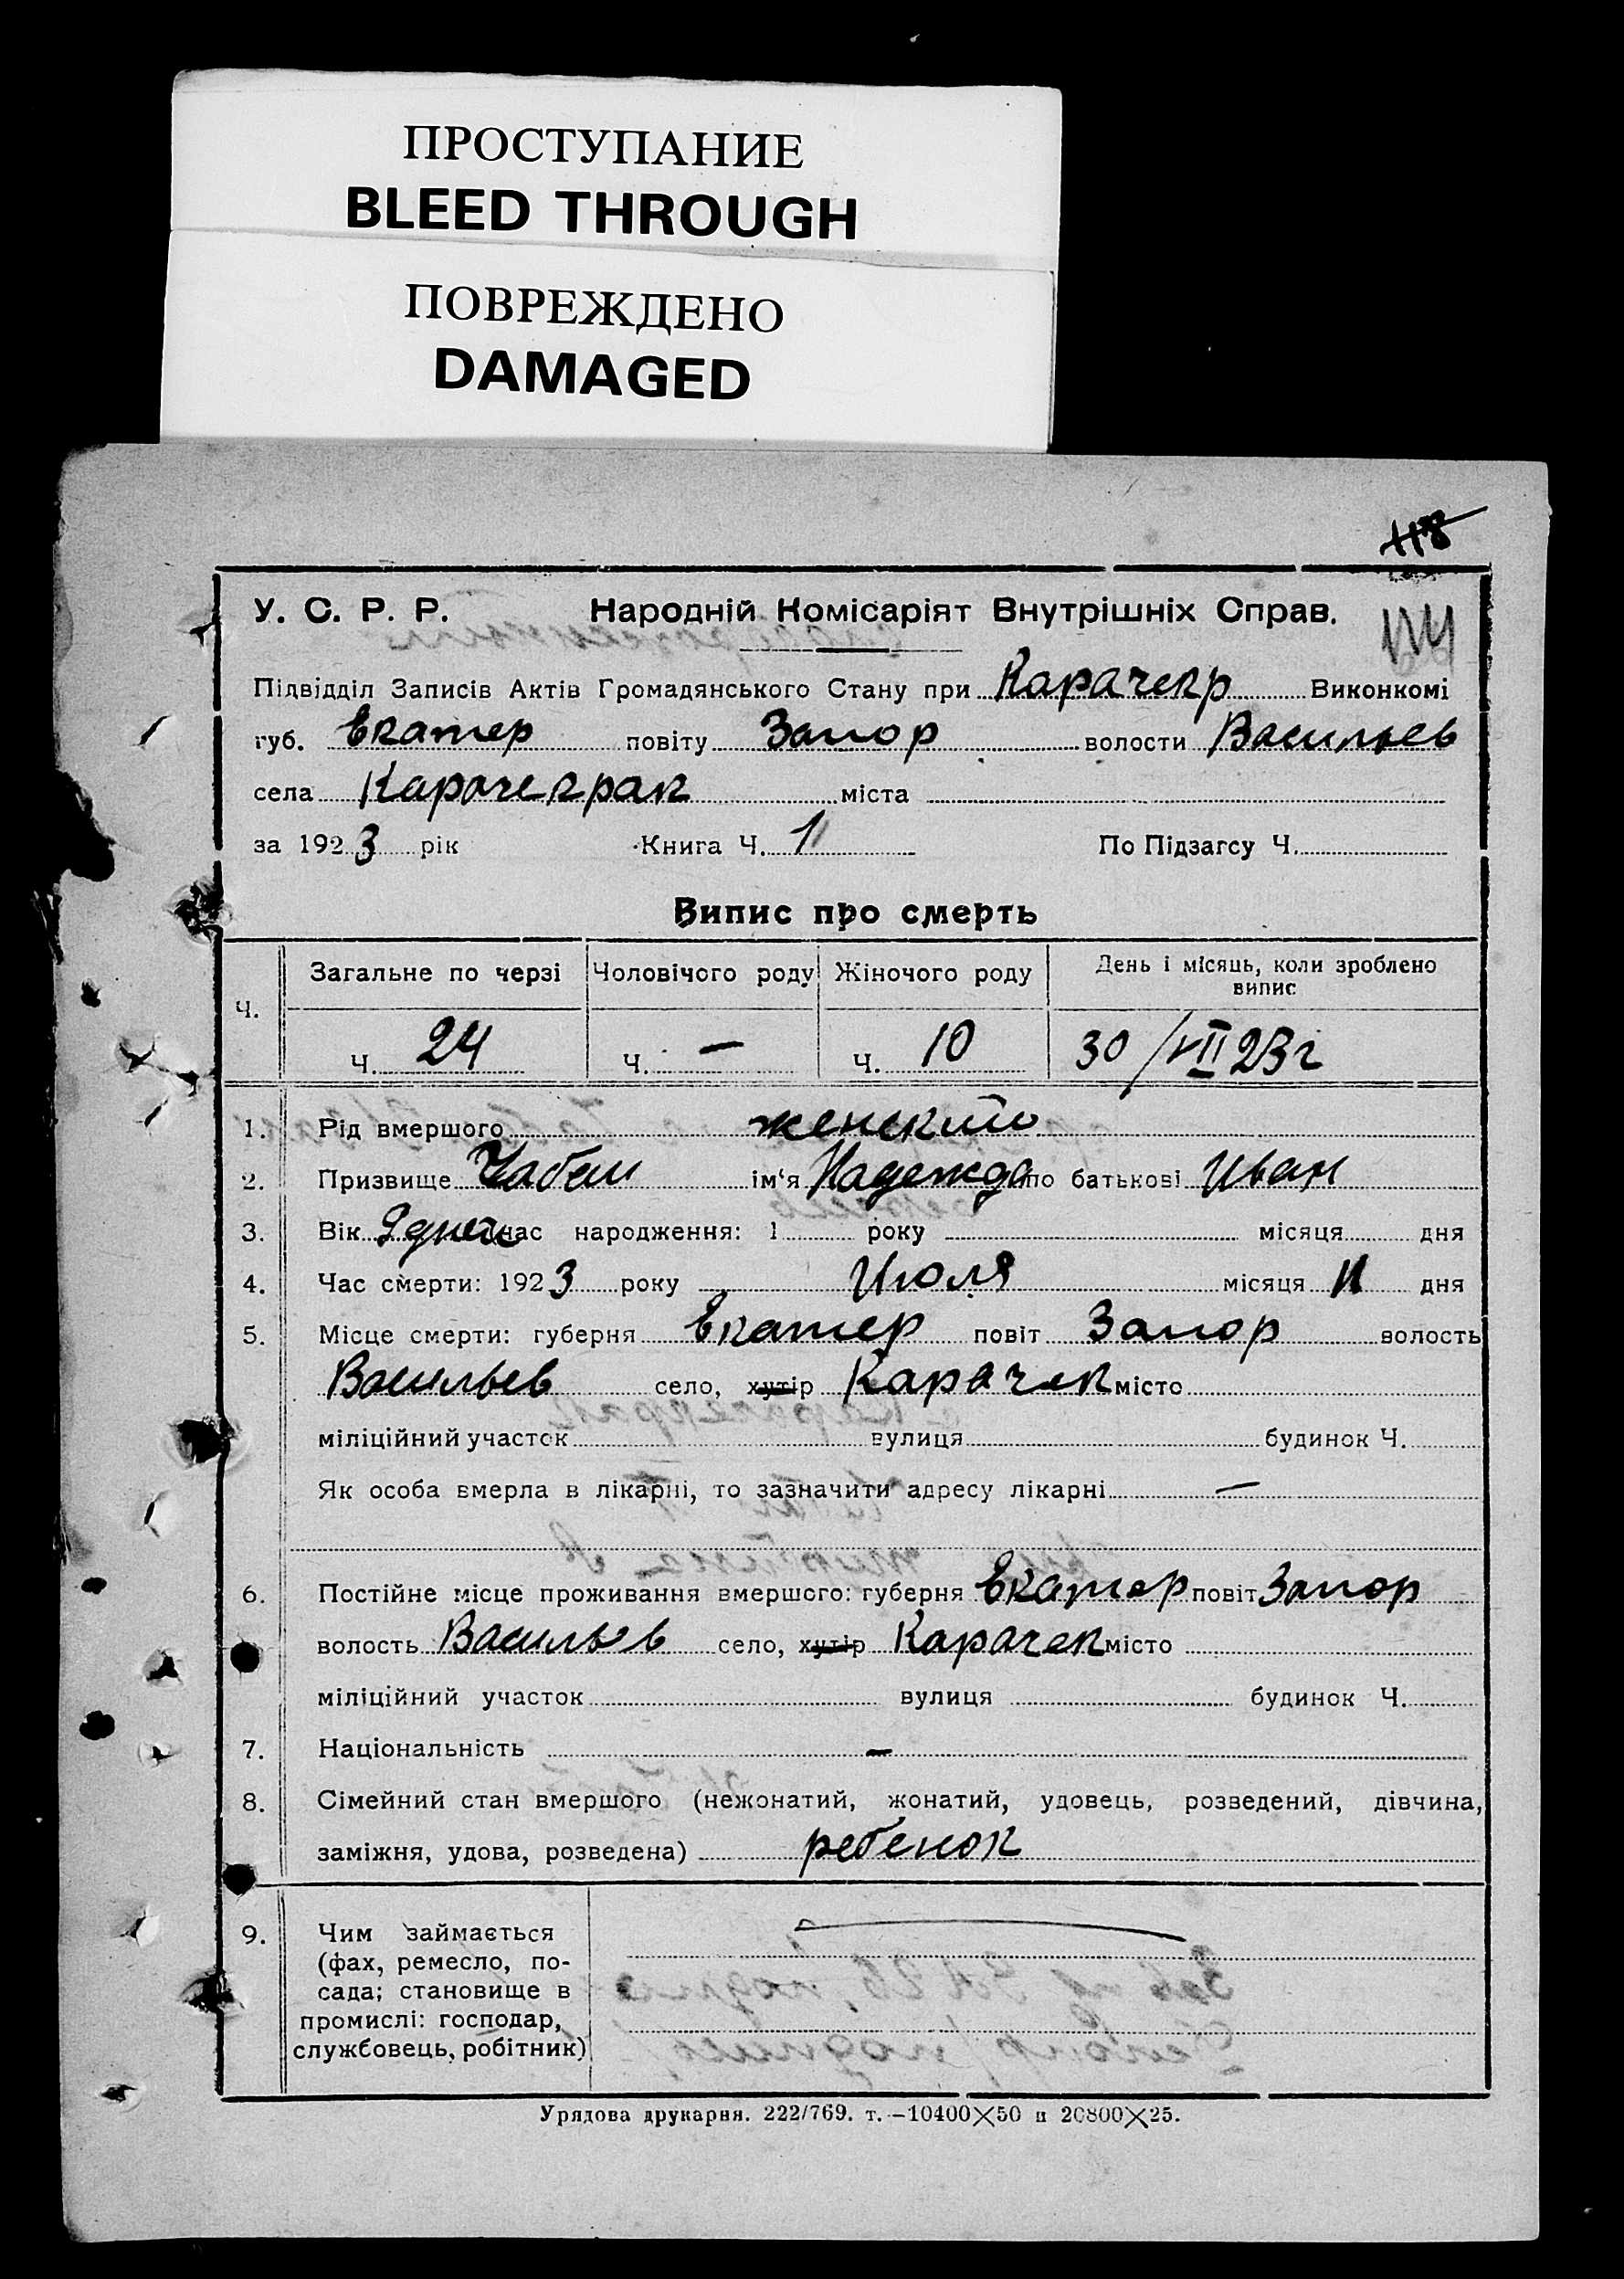 ПРОСТУПАНИЕ
BLEED THROUGH
ПОВРЕЖДЕНО
DAMAGED
118
У. С. Р. Р. Народній Комісаріят Внутрішніх Справ.
Підвідділ Записів Актів Громадянського Стану при Карачекр Виконкомі
губ. Екатер повіту Запор волости Васильев
села Карачекрак міста
за 1923 рік Книга Ч. 1 По Підзагсу Ч.
Випис про смерть
Ч. Загальне по черзі Чоловічого роду Жіночого роду День і місяць, коли зроблено випис
Ч. 24 Ч. — Ч. 10 30/VII 23 г
1. Рід вмершого женский
2. Призвище Чабан ім‘я Надежда по батькові Иван
3. Вік 9 дней час народження: 1 року місяця дня
4. Час смерти: 1923 року Июля місяця 11 дня
5. Місце смерти: губерня Екатер повіт Запор волость
Васильев село, хутір Карачек місто
міліційний участок вулиця будинок Ч.
Як особа вмерла в лікарні, то зазначити адресу лікарні —
6. Постійне місце проживання вмершого: губерня Екатер повіт Запор
волость Васильев село, хутір Карачек місто
міліційний участок вулиця будинок Ч.
7. Національність —
8. Сімейний стан вмершого (нежонатий, жонатий, удовець, розведений, дівчина,
заміжня, удова, розведена) ребенок
9. Чим займається
(фах, ремесло, по-
сада; становище в
промислі: господар,
службовець, робітник)
Урядова друкарня. 222/769. т.—10400×50 и 20800×25.